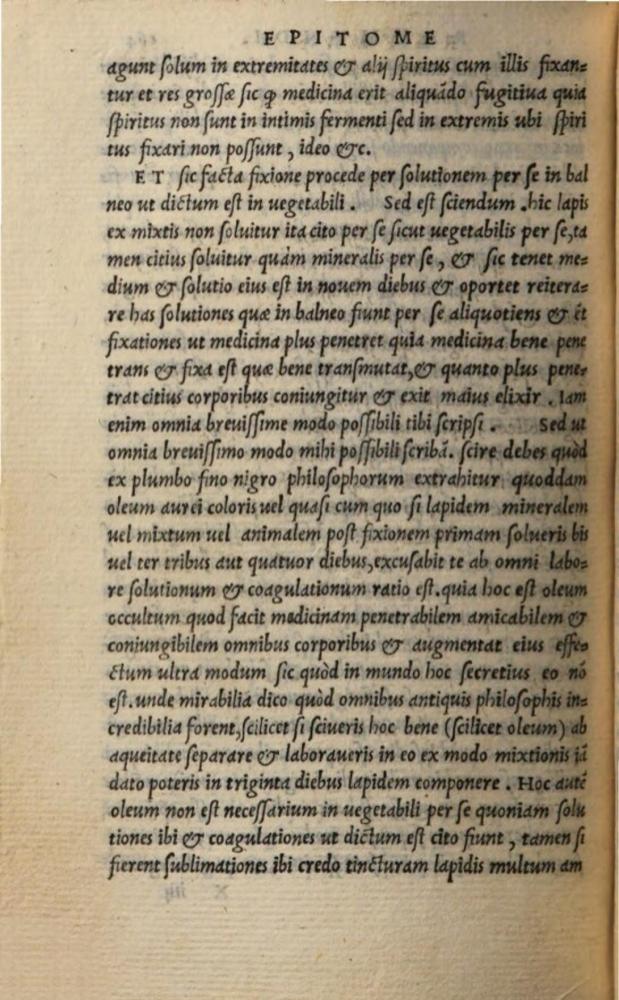 EPITOME
agunt ſolum in extremitates & alij ſpiritus cum illis fixan=
tur et res groſſæ ſic ꝙ medicina erit aliquādo fugitiua quia
ſpiritus non ſunt in intimis fermenti ſed in extremis ubi ſpiri
tus fixari non poſſunt, ideo &c.
ET ſic facta fixione procede per ſolutionem per ſe in bal
neo ut dictum eſt in uegetabili. Sed eſt ſciendum .hic lapis
ex mixtis non ſoluitur ita cito per ſe ſicut uegetabilis per ſe,ta
men citius ſoluitur quàm mineralis per ſe, & ſic tenet me=
dium & ſolutio eius eſt in nouem diebus & oportet reitera=
re has ſolutiones quæ in balneo fiunt per ſe aliquotiens & ēt
fixationes ut medicina plus penetret quia medicina bene pene
trans & fixa eſt quæ bene tranſmutat,& quanto plus pene=
trat citius corporibus coniungitur & exit maius elixir. Iam
enim omnia breuiſſime modo poſſibili tibi ſcripſi. Sed ut
omnia breuiſſimo modo mihi poſſibili ſcribā. ſcire debes quòd
ex plumbo ſino nigro philoſophorum extrahitur quoddam
oleum aurei coloris uel quaſi cum quo ſi lapidem mineralem
uel mixtum uel animalem poſt fixionem primam ſolueris bis
uel ter tribus aut quatuor diebus,excuſabit te ab omni labo=
re ſolutionum & coagulationum ratio eſt.quia hoc eſt oleum
occultum quod facit medicinam penetrabilem amicabilem &
coniungibilem omnibus corporibus & augmentat eius effe=
ctum ultra modum ſic quòd in mundo hoc ſecretius eo nō
eſt.unde mirabilia dico quòd omnibus antiquis philoſophis in=
credibilia forent,ſcilicet ſi ſciueris hoc bene (ſcilicet oleum) ab
aqueitate ſeparare & laboraueris in eo ex modo mixtionis iā
dato poteris in triginta diebus lapidem componere. Hoc autē
oleum non eſt neceſſarium in uegetabili per ſe quoniam ſolu
tiones ibi & coagulationes ut dictum eſt cito fiunt, tamen ſi
fierent ſublimationes ibi credo tincturam lapidis multum am